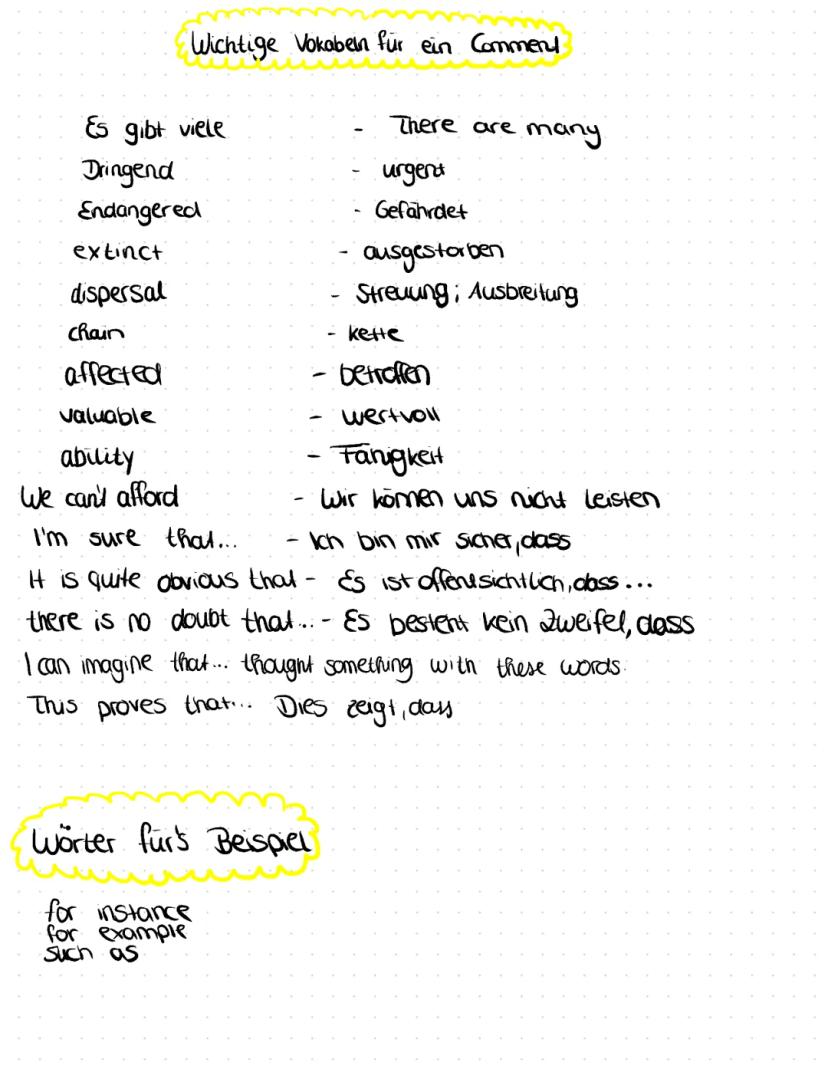 Wichtige Vokabeln für ein Comment
Es gibt viele - There are many
Dringend - urgent
Endangered - Gefährdet
extinct - ausgestorben
dispersal - Streuung; Ausbreitung
chain - kette
affected - betroffen
valuable - wertvoll
ability - Fähigkeit
We can't afford - Wir können uns nicht leisten
I'm sure that... - Ich bin mir sicher, dass
It is quite obvious that - Es ist offensichtlich, dass...
there is no doubt that... - Es besteht kein Zweifel, dass
I can imagine that... thought something with these words.
This proves that... Dies zeigt, dass
Wörter für's Beispiel
for instance
for example
such as